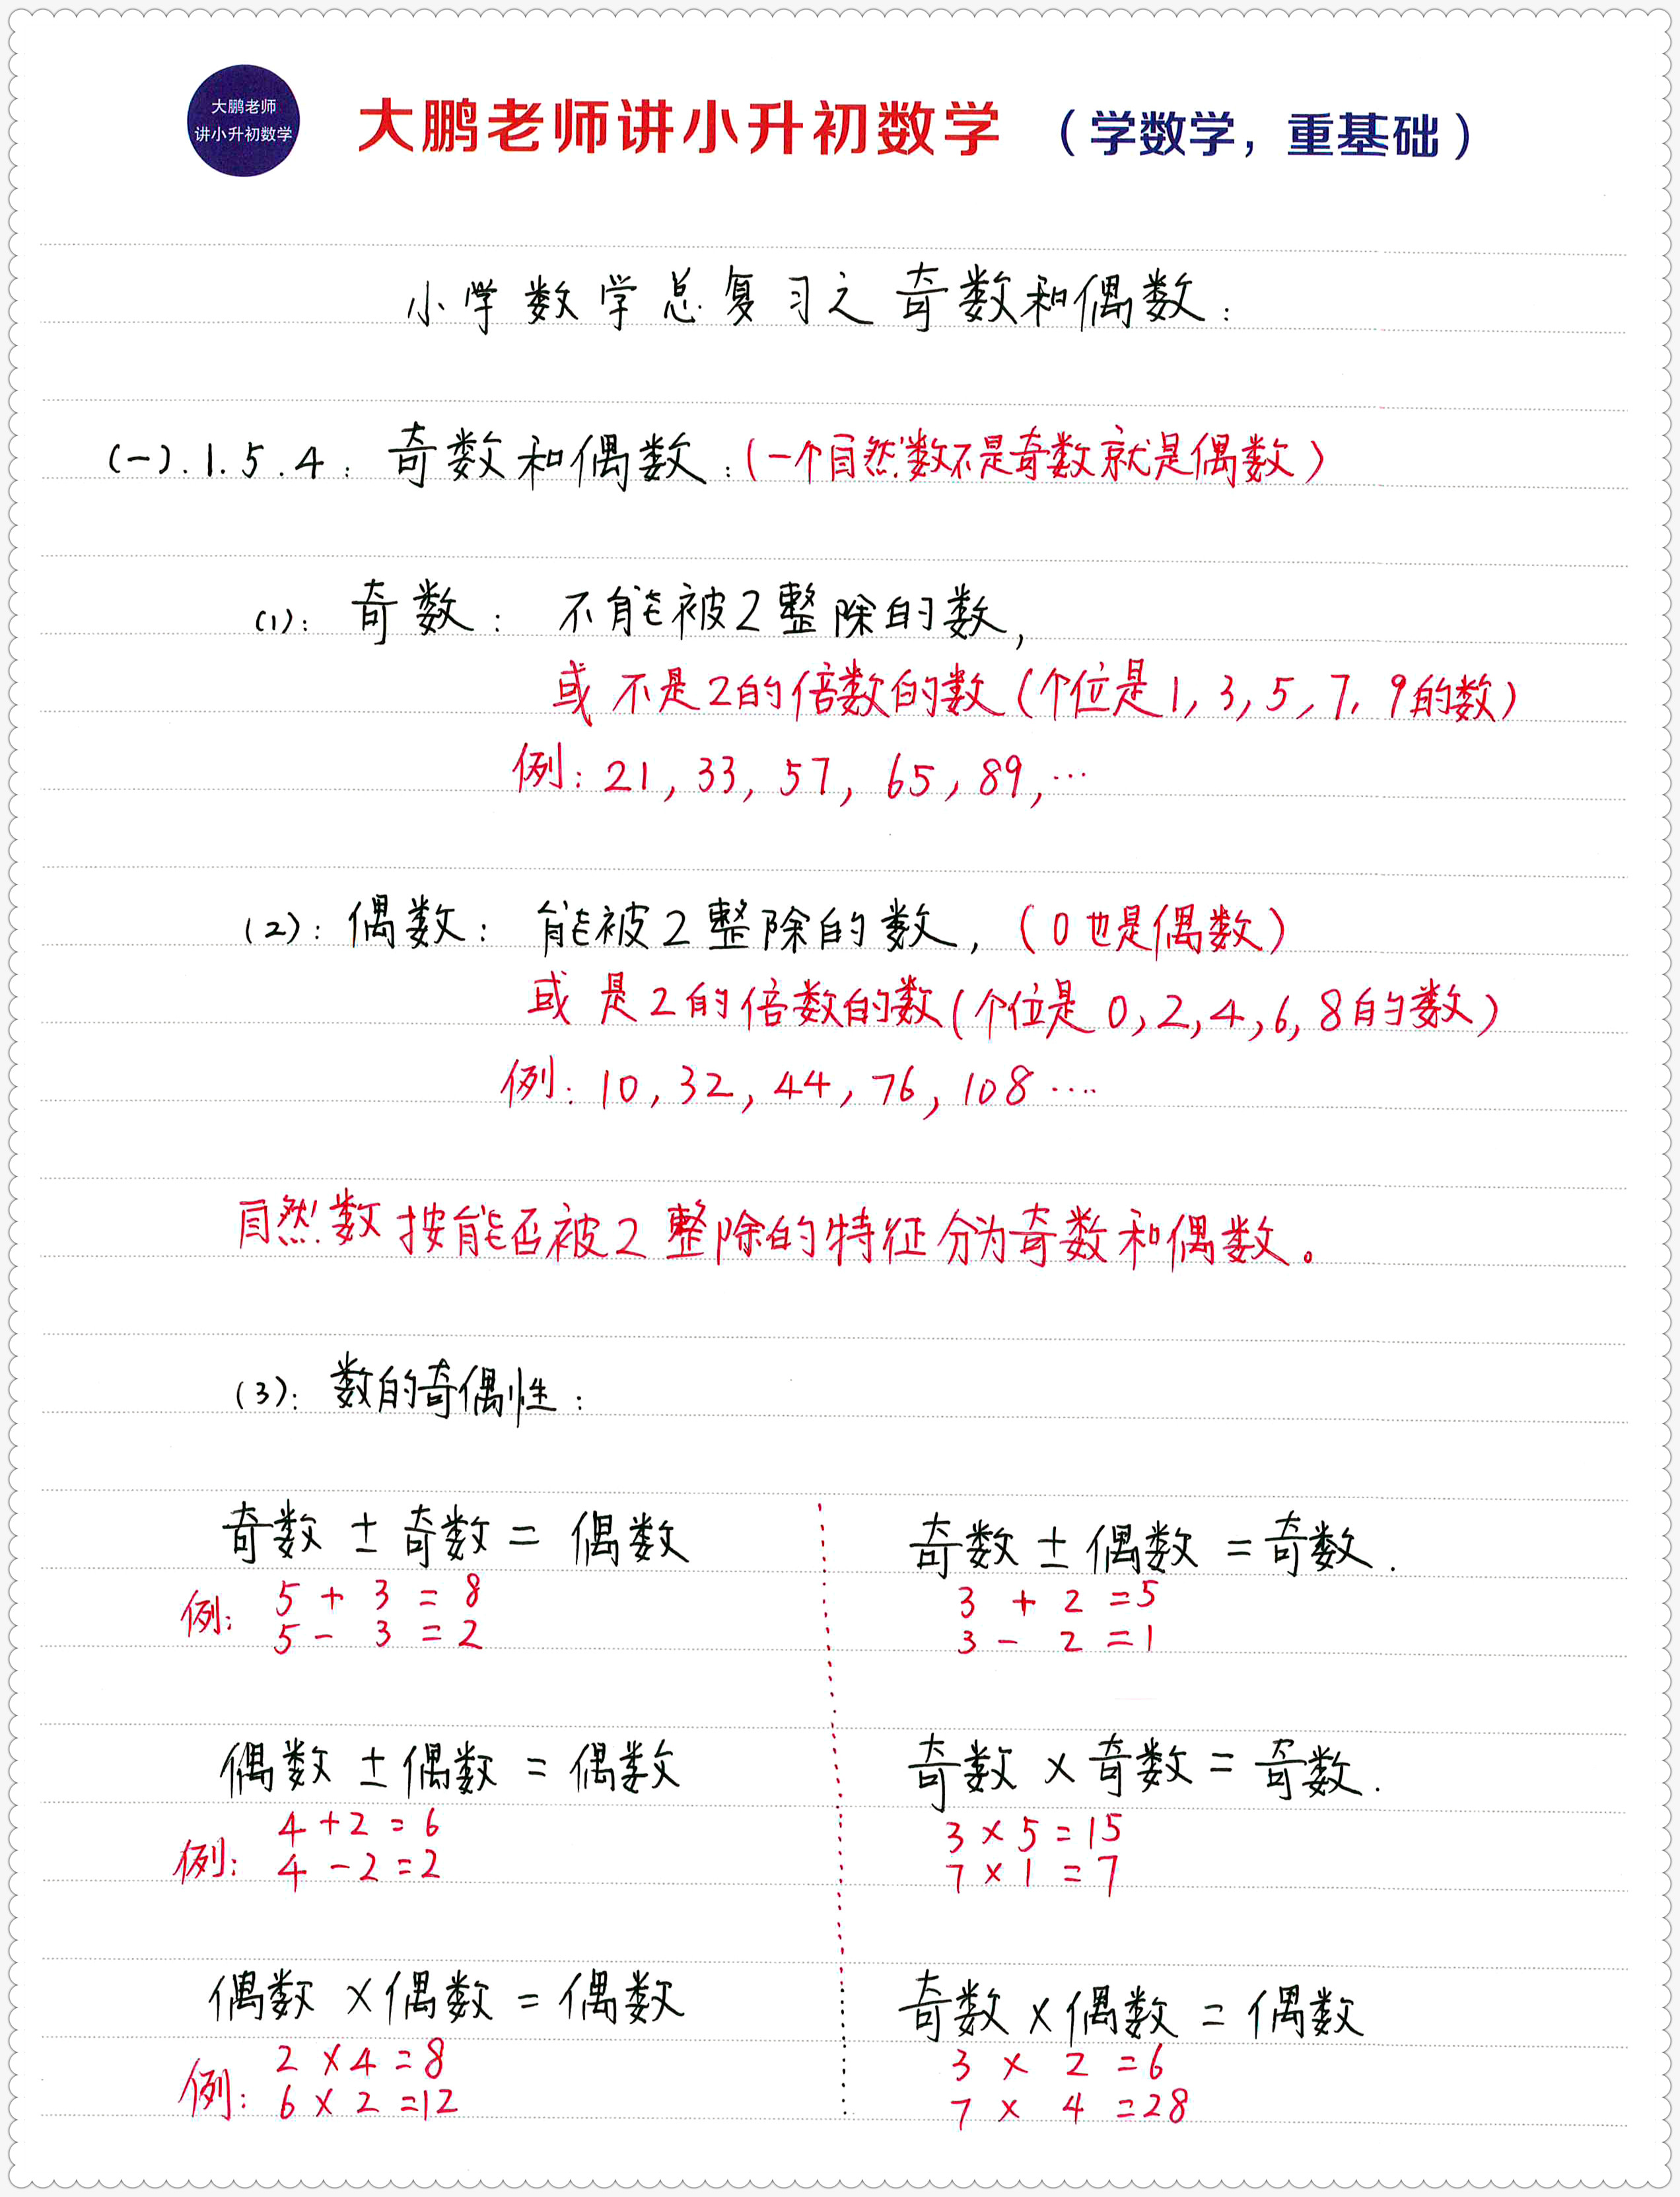 大鹏老师
讲小升初数学
大鹏老师讲小升初数学 （学数学，重基础）
小学数学总复习之奇数和偶数：
(一).1.5.4：奇数和偶数：(一个自然数不是奇数就是偶数)
(1)：奇数：不能被2整除的数，
或不是2的倍数的数(个位是1,3,5,7,9的数)
例：21,33,57,65,89,…
(2)：偶数：能被2整除的数，(0也是偶数)
或是2的倍数的数(个位是0,2,4,6,8的数)
例：10,32,44,76,108….
自然数按能否被2整除的特征分为奇数和偶数。
(3)：数的奇偶性：
奇数±奇数=偶数
例：5+3=8
5-3=2
奇数±偶数=奇数.
3+2=5
3-2=1
偶数±偶数=偶数
例：4+2=6
4-2=2
奇数×奇数=奇数.
3×5=15
7×1=7
偶数×偶数=偶数
例：2×4=8
6×2=12
奇数×偶数=偶数
3×2=6
7×4=28